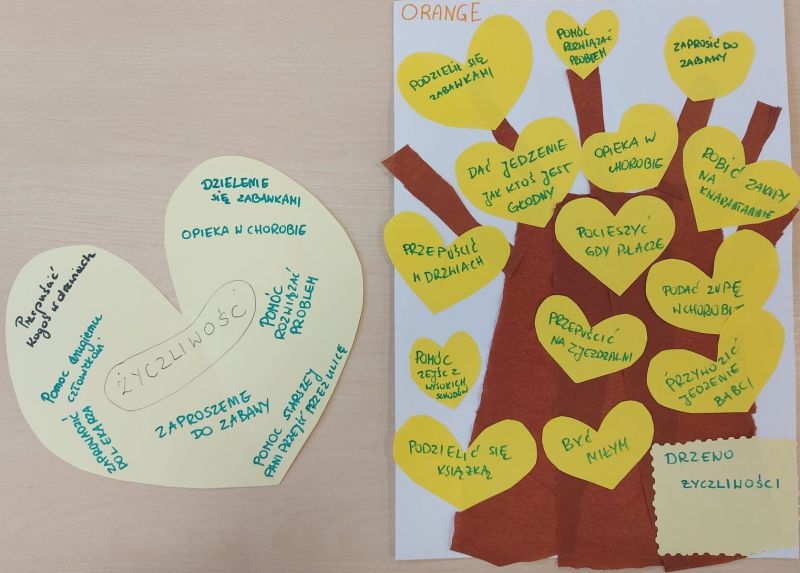 DZIELENIE
SIĘ ZABAWKAMI
OPIEKA W CHOROBIE
Przepuścić
kogoś w drzwiach
POMÓC
ROZWIĄZAĆ
PROBLEM
ŻYCZLIWOŚĆ
POMOC drugiemu
człowiekowi
ZAPROWADZIĆ
DO LEKARZA
ZAPROSZENIE
DO ZABAWY
POMOC STARSZEJ
PANI PRZEJŚĆ PRZEZ ULICĘ
ORANGE
PODZIELIĆ SIĘ
ZABAWKAMI
POMÓC
ROZWIĄZAĆ
PROBLEM
ZAPROSIĆ DO
ZABAWY
DAĆ JEDZENIE
JAK KTOŚ JEST
GŁODNY
OPIEKA W
CHOROBIE
ROBIĆ ZAKUPY
NA
KWARANTANNIE
PRZEPUŚCIĆ
W DRZWIACH
POCIESZYĆ
GDY PŁACZE
PODAĆ ZUPĘ
W CHOROBIE
POMÓC
ZEJŚĆ Z
WYSOKICH
SCHODÓW
PRZEPUŚCIĆ
NA ZJEŻDŻALNI
PRZYWOZIĆ
JEDZENIE
BABCI
PODZIELIĆ SIĘ
KSIĄŻKĄ
BYĆ
MIŁYM
DRZEWO
ŻYCZLIWOŚCI